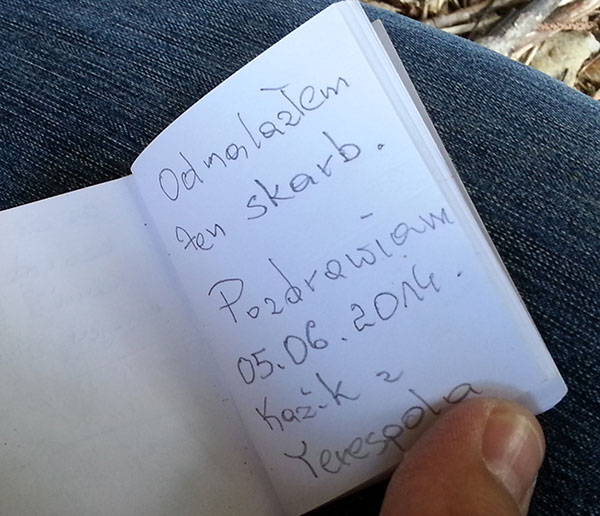 Odnalazłem
ten skarb.
Pozdrawiam
05.06.2014.
Kazik z
Terespola